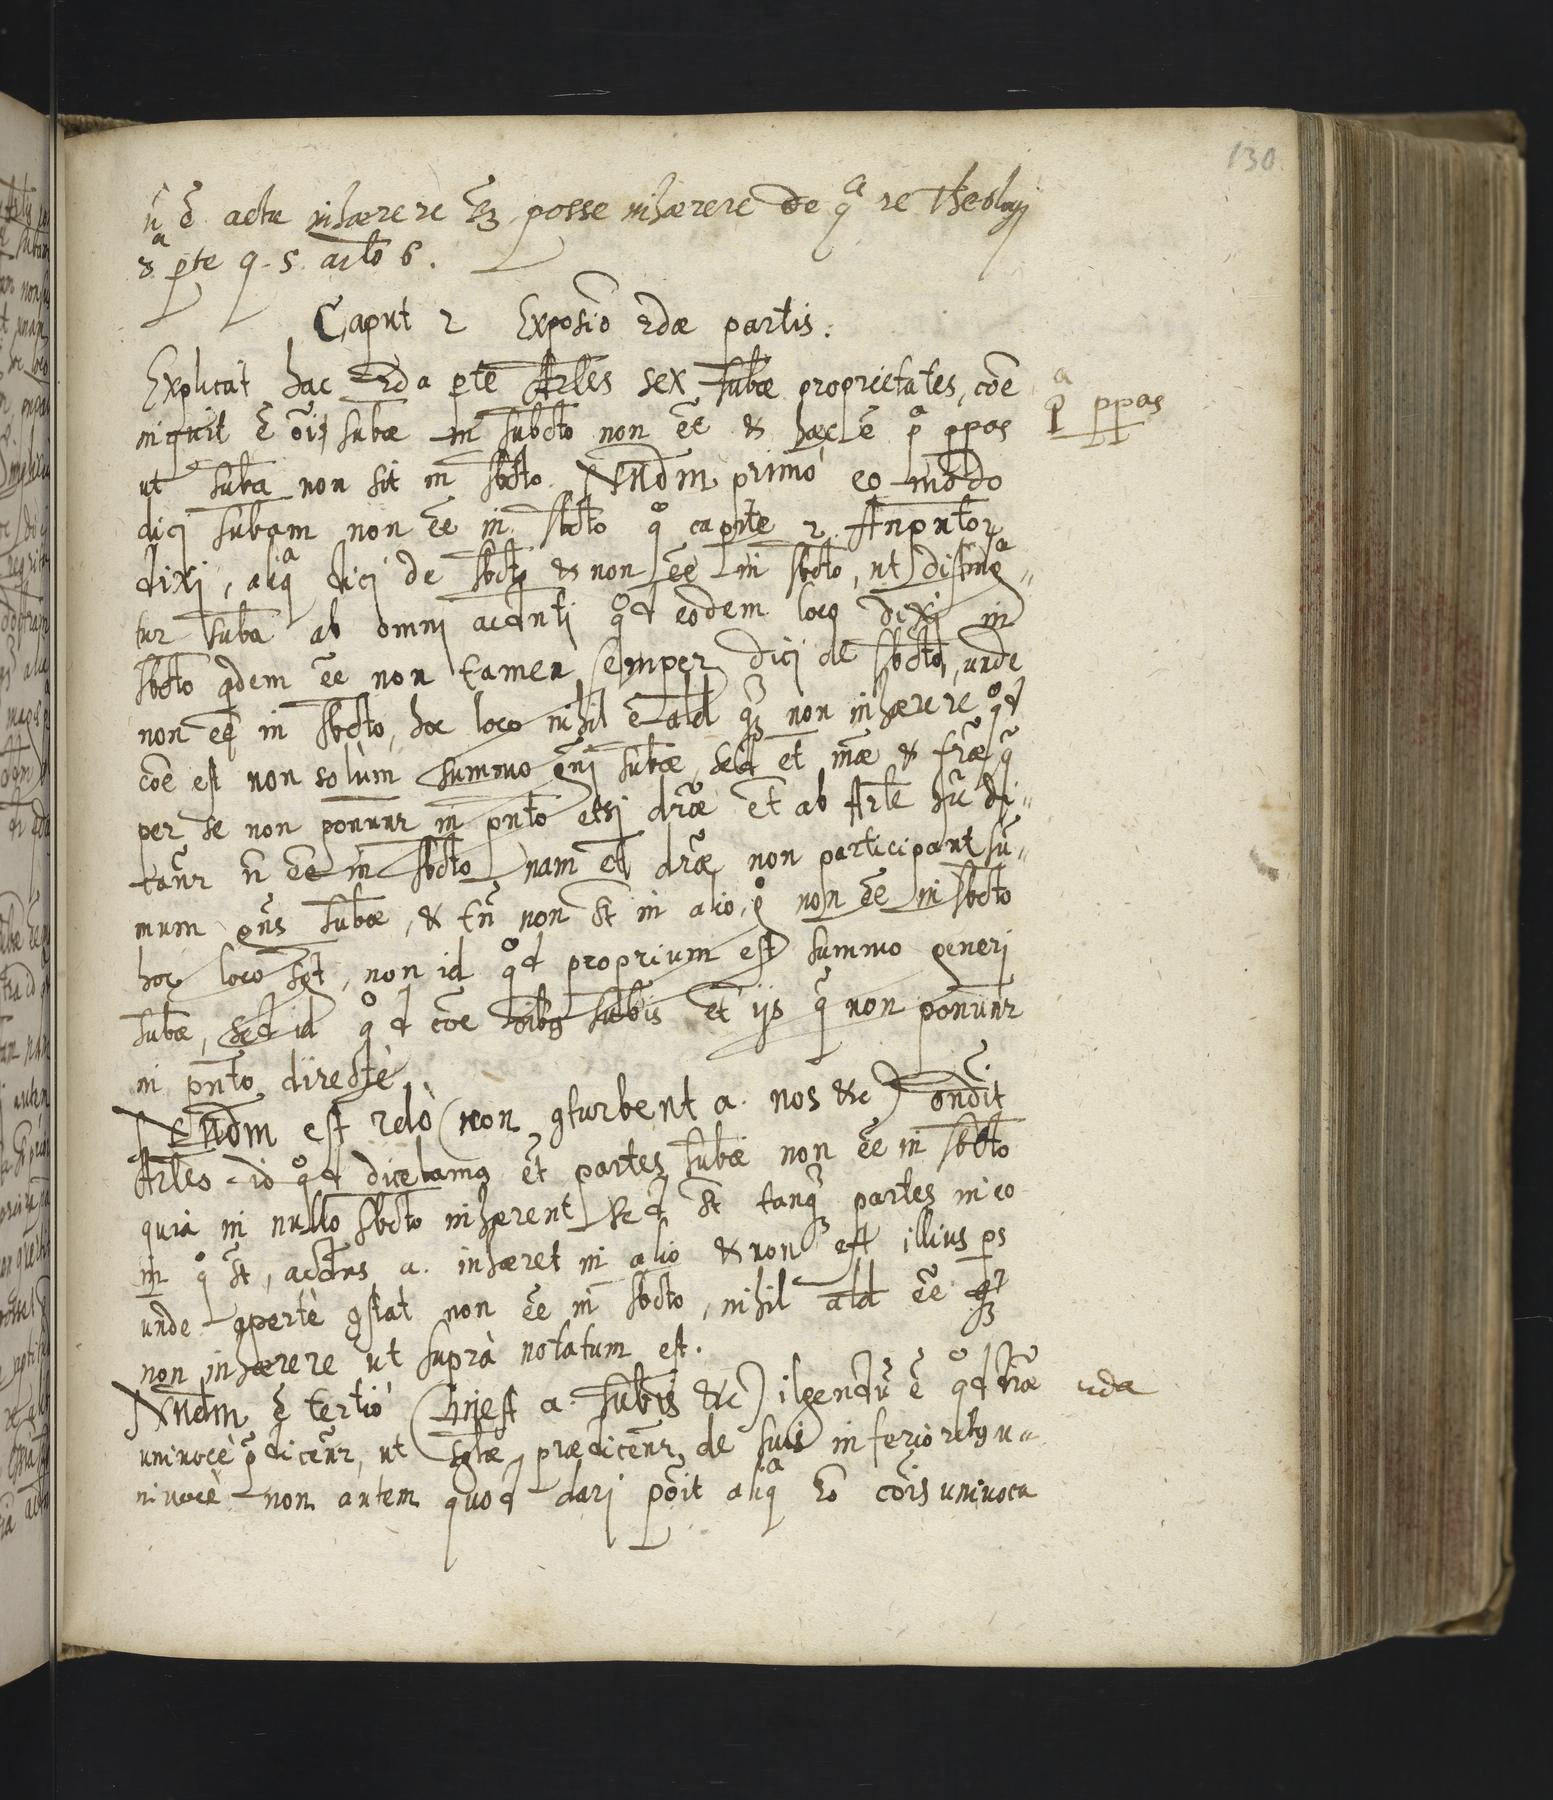 130
n̄ ē actu inhærere sꝫ posse inhærere de qᵃ re Theologi
3ᵃ pte q. 5. arlo 6.
Caput 2 Exposio̅ 2dæ partis.
Explicat hac 2da pte Arles sex subæ proprietates, coē
inquit ē ōis subæ in subcto non eē & hæc ē pᵃ ppas
pᵃ ppas
ut suba non sit in sbcto. Nndm primò eo modo
dici subam non eē in sbcto qº capite 2. Anpntor
dixi, aliqᵃ dici de sbcto & non eē in sbcto, ut distingᵃ
tur suba ab omni acdnti qºd eodem loco dixi in
sbcto qdem eē non tamen semper dici de sbcto, unde
non eē in sbcto, hoc loco nihil ē ald qꝫ non inhærere qºd
coē est non solùm summo gni subæ, sed et mæ & fræ q̄
per se non ponunr in pnto etsi dræ et ab Arle hūc di
tanr n̄ eē in sbcto nam et dræ non participant sū
mum gns subæ, & tn̄ non st in alio, gº non eē in sbcto
hoc loco sgt, non id qºd proprium est summo generi
subæ, sed id qºd coē oibꝰ subis et ijs q̄ non ponunr
in pnto directè
Nndm est 2dò (non gturbent a. nos &c) ondit
Arles id qºd dicebamꝰ et partes subæ non eē in sbcto
quia in nullo sbcto inhærent sed st tanqꝫ partes in eo
in qº st, acdns a. inhæret in alio & non est illius ps
unde apertè gstat non eē in sbcto, nihil ald eē qꝫ
non inhærere ut suprà notatum est.
Nndm ē tertiò (Inest a. subis &c) ilgendū ē qºd dræ
2da
univocè p̄dicenr, ut sbæ prædicenr de suis inferioribꝰ u
nivocè non autem quod dari poit aliqᵃ ro cois univoca